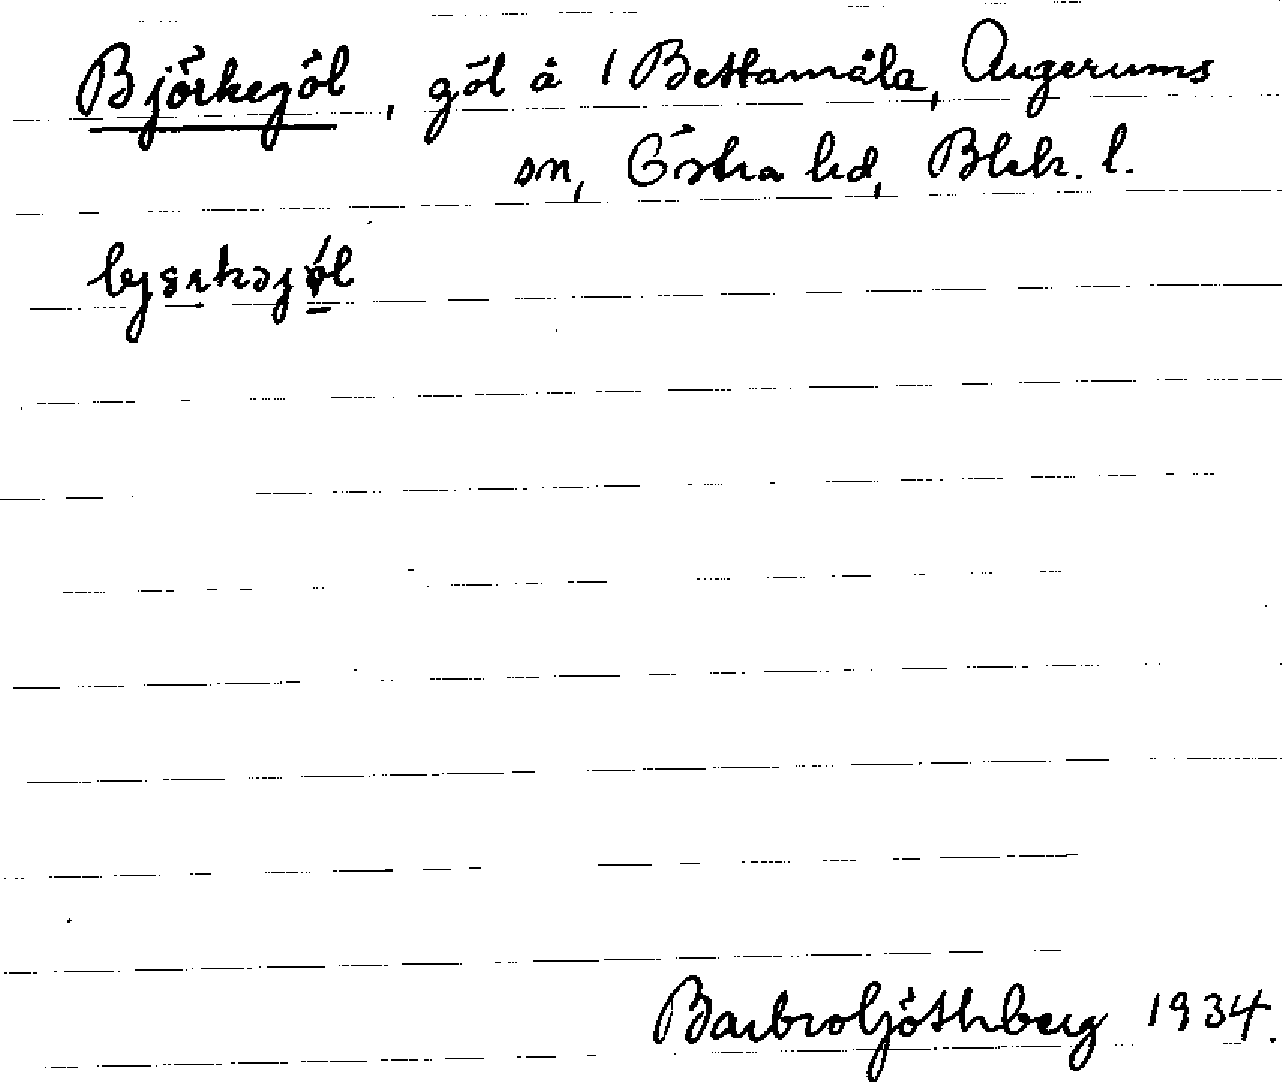 Björkegöl, göl å 1 Bettamåla, Augerums
sn, Östra hd, Blek. l.
Barbro Göthberg 1934.